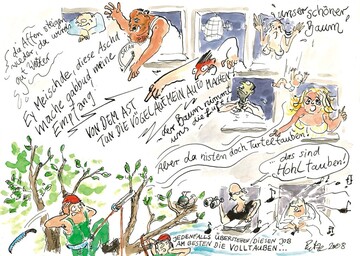 da Affen steigen
wieder da wird
gut Wetter
Ey Meischde, diese Ascht
mache gabbud meine
Empfang!
VON DEM AST
TUN DIE VÖGEL AUF MEIN AUTO MACHEN
unser schöner
Baum!
der Baum nimmt
uns die
aber da nisten doch Turteltauben!
das sind
Hohltauben!
JEDENFALLS ÜBERSTEHEN DIESEN JOB
AM BESTEN DIE VOLLTAUBEN...
2008